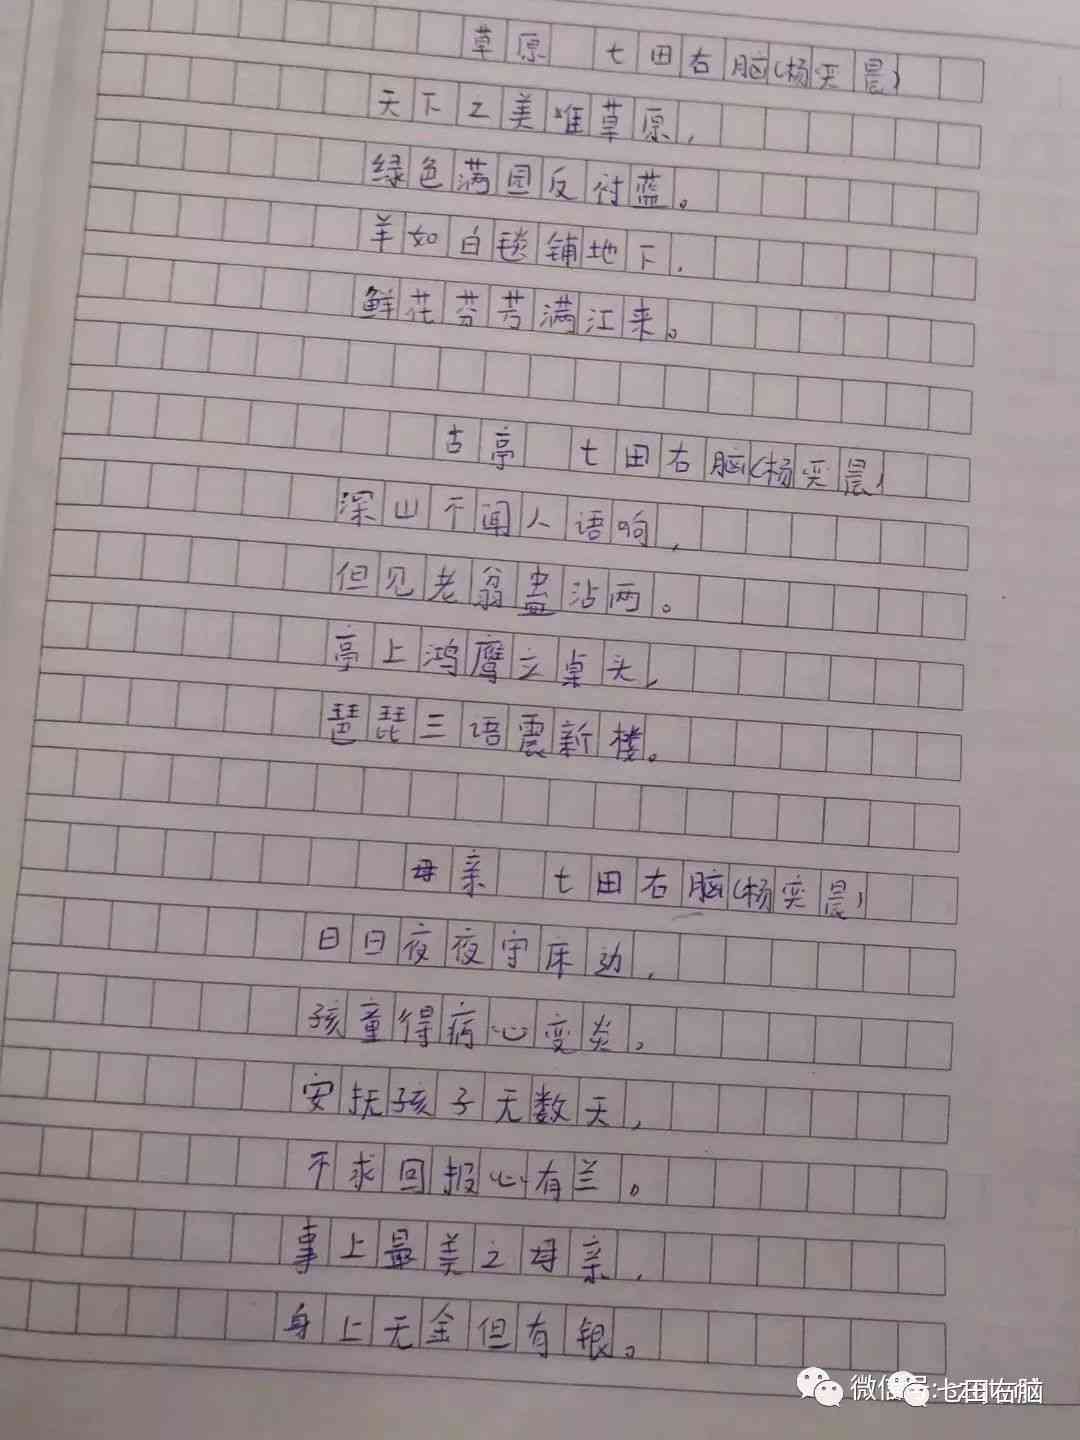 草原 七田右脑(杨奕晨)
天下之美唯草原,
绿色满园反衬蓝。
羊如白毯铺地下,
鲜花芬芳满江来。
古亭 七田右脑(杨奕晨)
深山不闻人语响,
但见老翁蛊沾两。
亭上鸿鹰立桌头,
琶琵三语震新楼。
母亲 七田右脑(杨奕晨)
日日夜夜守床动,
孩童得病心变炎。
安抚孩子无数天,
不求回报心有兰。
事上最美之母亲,
身上无金但有银。
微信号:
七田右脑